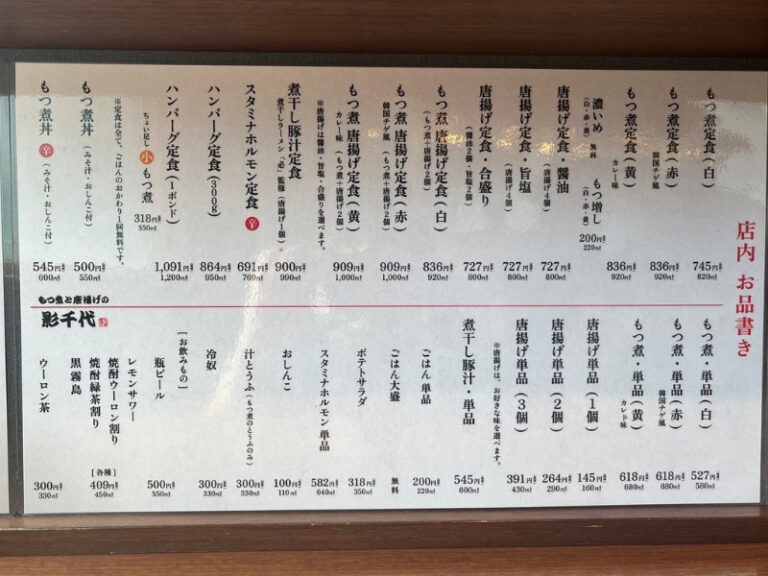 店内 お品書き
もつ煮定食(白) 745円 820円
もつ煮定食(赤) 韓国チゲ風 836円 920円
もつ煮定食(黄) カレー味 836円 920円
濃いめ(白・赤・黄) 無料 もつ増し(白・赤・黄) 200円 220円
唐揚げ定食・醤油(唐揚げ4個) 727円 800円
唐揚げ定食・旨塩(唐揚げ4個) 727円 800円
唐揚げ定食・合盛り(醤油2個・旨塩2個) 727円 800円
もつ煮 唐揚げ定食(白)(もつ煮+唐揚げ2個) 836円 920円
もつ煮 唐揚げ定食(赤) 韓国チゲ風(もつ煮+唐揚げ2個) 909円 1,000円
もつ煮 唐揚げ定食(黄) カレー味(もつ煮+唐揚げ2個) 909円 1,000円
※唐揚げは醤油・旨塩・合盛りを選べます。
煮干し豚汁定食 煮干しラーメン「必」監修(唐揚げ1個) 900円 990円
スタミナホルモン定食 辛 691円 760円
ハンバーグ定食(300g) 864円 950円
ハンバーグ定食(1ポンド) 1,091円 1,200円
ちょい足し 小 もつ煮 318円 350円
※定食は全て、ごはんのおかわり1回無料です。
もつ煮丼(みそ汁・おしんこ付) 500円 550円
もつ煮丼 辛(みそ汁・おしんこ付) 545円 600円
もつ煮・単品(白) 527円 580円
もつ煮・単品(赤) 韓国チゲ風 618円 680円
もつ煮・単品(黄) カレー味 618円 680円
唐揚げ単品(1個) 145円 160円
唐揚げ単品(2個) 264円 290円
唐揚げ単品(3個) 391円 430円
※唐揚げは、お好きな味を選べます。
煮干し豚汁・単品 545円 600円
ごはん 単品 200円 220円
ごはん大盛 無料
ポテトサラダ 318円 350円
スタミナホルモン 単品 582円 640円
おしんこ 100円 110円
汁とうふ(もつ煮のとうふのみ) 300円 330円
冷奴 300円 330円
[お飲みもの]
瓶ビール 500円 550円
レモンサワー
焼酎ウーロン割り
焼酎緑茶割り
黒霧島
[各種] 409円 450円
ウーロン茶 300円 330円
もつ煮と唐揚げの
彰千代